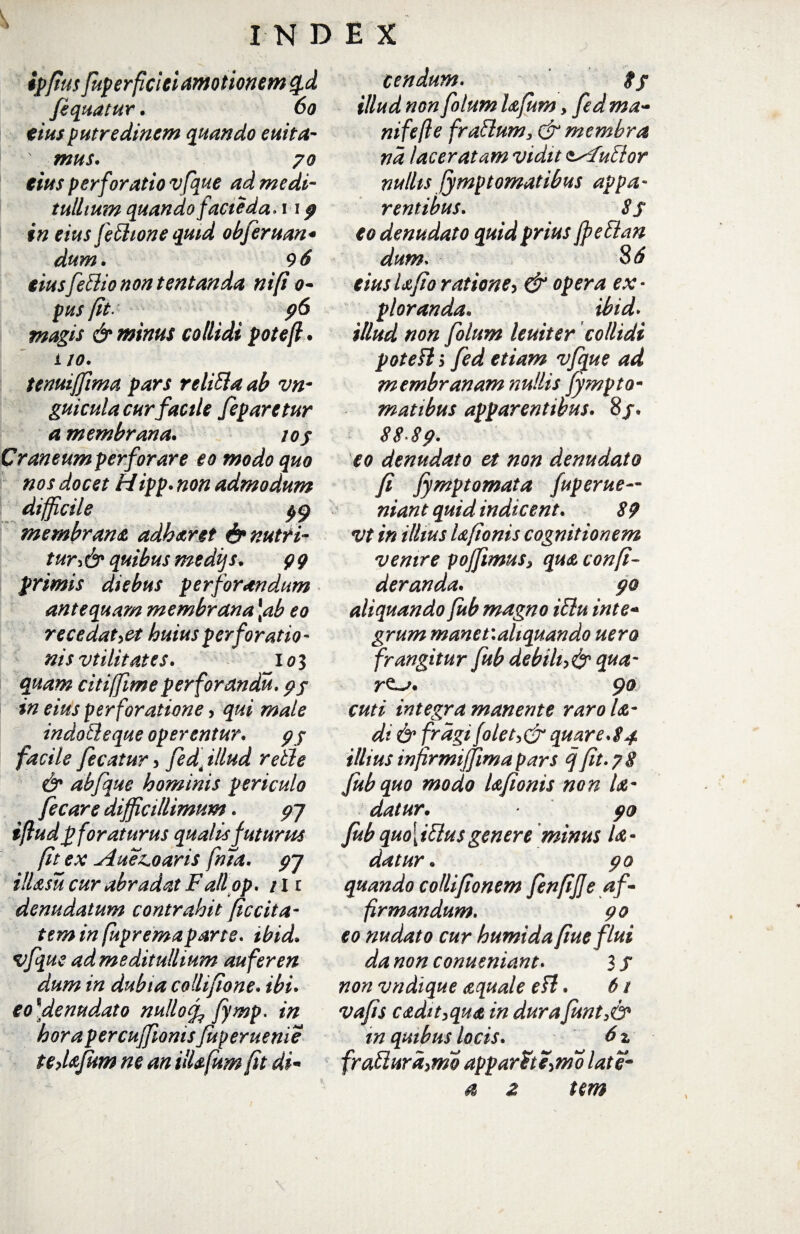 INDEX
ipsius superficiei amotionem q̃d
sequatur. 60
eius putredinem quando euita-
mus. 70
eius perforatio vsque ad medi-
tullium quando faciẽda. 119
in eius sectione quid obseruan-
dum. 96
eius sectio non tentanda nisi o-
pus sit. 96
magis & minus collidi potest.
110.
tenuissima pars relicta ab vn-
guicula cur facile separetur
a membrana. 105
Craneum perforare eo modo quo
nos docet Hipp. non admodum
difficile 99
membranæ adhæret & nutri-
tur, & quibus medijs. 99
primis diebus perforandum
antequam membrana ab eo
recedat, et huius perforatio-
nis vtilitates. 103
quam citissime perforandũ. 95
in eius perforatione, qui male
indocteque operentur. 95
facile secatur, sed illud recte
& absque hominis periculo
secare difficillimum. 97
istud ꝑforaturus qualis futurus
sit ex Auẽzoaris sñia. 97
illæsũ cur abradat Fallop. 111
denudatum contrahit siccita-
tem in suprema parte. ibid.
vsque ad meditullium auferen
dum in dubia collisione. ibi.
eo denudato nulloq; symp. in
hora percussionis superuenie
te, læsum ne an illæsum sit di-
cendum. 85
illud non solum læsum, sed ma-
nifeste fractum, & membra
nã laceratam vidit Auctor
nullis symptomatibus appa-
rentibus. 85
eo denudato quid prius spectan
dum. 86
eius læsio ratione, & opera ex-
ploranda. ibid.
illud non solum leuiter collidi
potest; sed etiam vsque ad
membranam nullis sympto-
matibus apparentibus. 85.
88.89.
eo denudato et non denudato
si symptomata superue-
niant quid indicent. 89
vt in illius læsionis cognitionem
venire possimus, quæ consi-
deranda. 90
aliquando sub magno ictu inte-
grum manet: aliquando uero
frangitur sub debili, & qua-
re. 90
cuti integra manente raro læ-
di & frãgi solet, & quare. 84
illius infirmissima pars q̃ sit. 78
sub quo modo læsionis non læ-
datur. 90
sub quo ictus genere minus læ-
datur. 90
quando collisionem sensisse af-
firmandum. 90
eo nudato cur humida siue flui
da non conueniant. 35
non vndique æquale est. 61
vasis cædit, quæ in dura sunt, &
in quibus locis. 62
fracturã, mõ apparẽtẽ, mõ latẽ-
a 2 tem